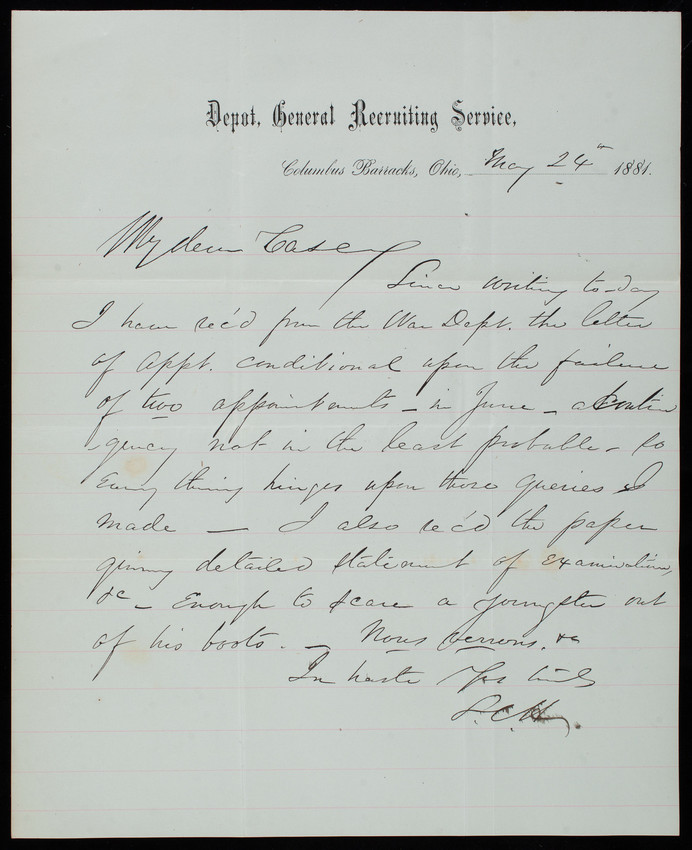 Depot, General Recruiting Service,
Columbus Barracks, Ohio, May 24th 1881.
My dear Casey
Since writing to-day
I have rec'd from the War Dept. the letter
of Appt. conditional upon the failure
of two appointments - in June - a contin
-gency not in the least probable - so
Every thing hinges upon those queries I
made — I also rec'd the paper
giving detailed statement of Examination,
&c - Enough to scare a youngster out
of his boots. - Nous verrons, &c
In haste Yrs truly